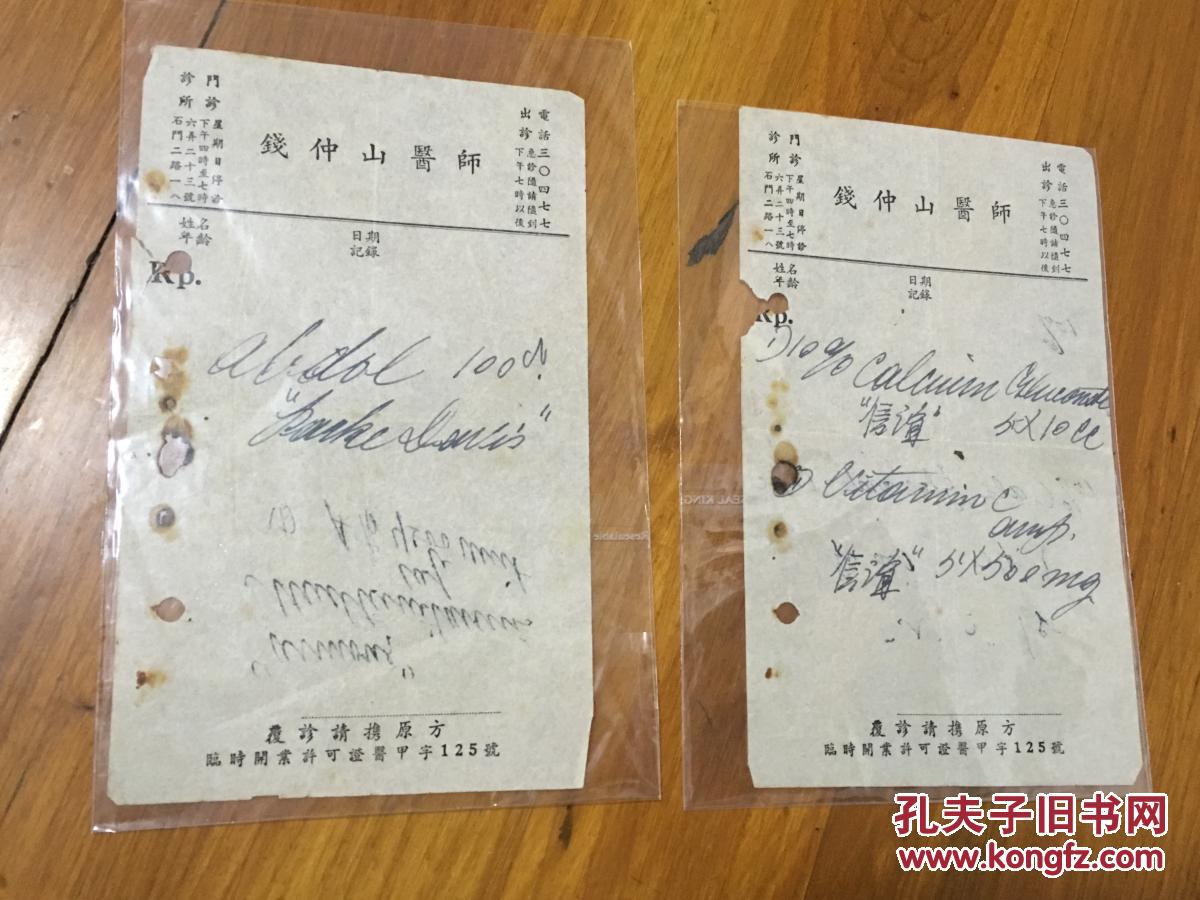 錢仲山醫師
門診 星期日停診 下午四時至七時
診所 石門二路一八六弄二十三號
電話三〇四七七
出診 急診隨請隨到 下午七時以後
姓名
年齡
日期
記錄
Rp.
Abdol 100 
"Parke Davis"
覆診請携原方
臨時開業許可證醫甲字125號
錢仲山醫師
門診 星期日停診 下午四時至七時
診所 石門二路一八六弄二十三號
電話三〇四七七
出診 急診隨請隨到 下午七時以後
姓名
年齡
日期
記錄
Rp.
1) 10% Calcium Gluconate
"信誼" 5X10cc
Vitamin C
amp.
"信誼" 5X500mg
覆診請携原方
臨時開業許可證醫甲字125號
SEAL KING
Resealable
孔夫子旧书网
www.kongfz.com